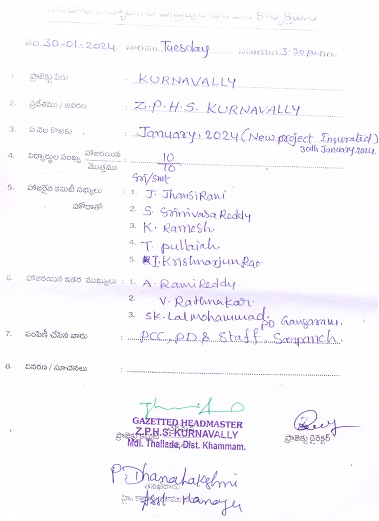 తేది. 30-01-2024 వారము Tuesday సమయము 3:30 p.m.
1. ప్రాజెక్టు పేరు : KURNAVALLY
2. ప్రదేశము / ఆవరణ : Z.P.H.S. KURNAVALLY
3. ఏ నెల కొరకు : January, 2024 (New project Inaurated)
30th January, 2024.
4. విద్యార్థుల సంఖ్య హాజరయిన / మొత్తము : 10 / 10
Sri/Smt
5. హాజరైన కమిటీ సభ్యులు : 1. J. Jhansi Rani
2. S. Srinivasa Reddy
3. K. Ramesh
4. T. pullaiah
5. T. Krishnarjun Rao
6. హాజరయిన ఇతర ముఖ్యులు : 1. A. Rami Reddy
2. V. Rathnakar
3. SK. Lal mohammad, PD Gangaram.
7. పంపిణీ చేసిన వారు : PCC, PD & Staff, Sarpanch.
8. వివరణ / సూచనలు :
GAZETTED HEADMASTER
Z.P.H.S. KURNAVALLY
Mdl. Thallada, Dist. Khammam.
ప్రాజెక్టు డైరెక్టర్
P. Dhanalakshmi